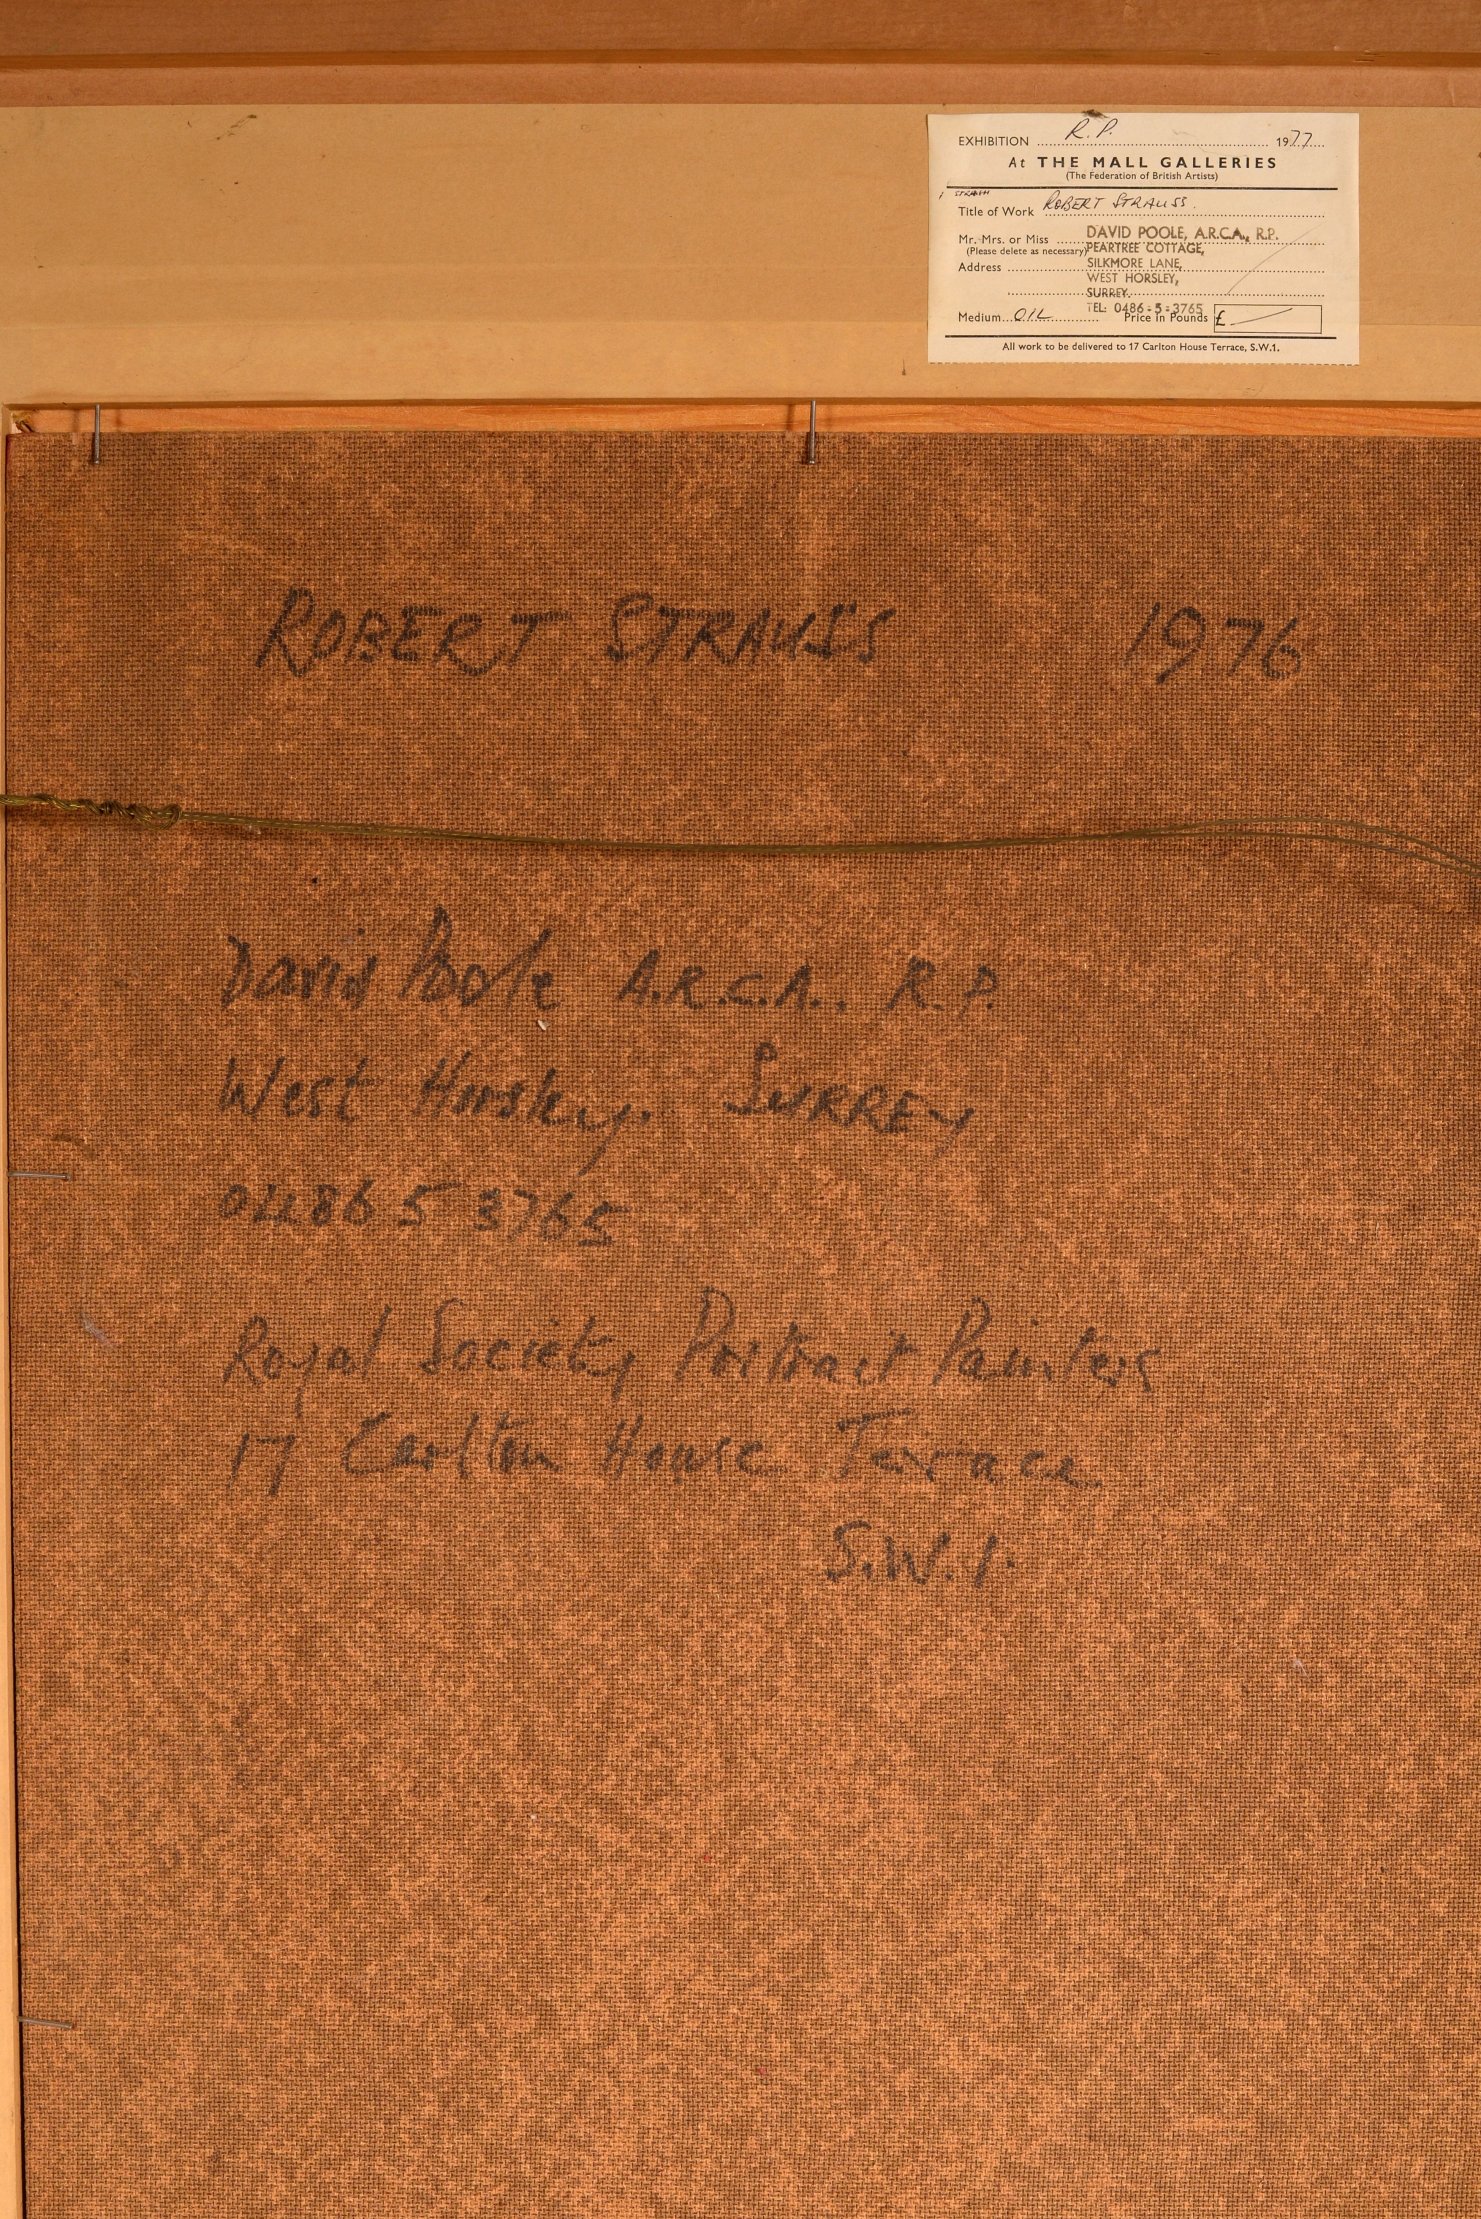 EXHIBITION R.P. 1977
At THE MALL GALLERIES
(The Federation of British Artists)
Title of Work ROBERT STRAUSS.
Mr. Mrs. or Miss DAVID POOLE, A.R.C.A., R.P.
(Please delete as necessary) PEARTREE COTTAGE,
Address SILKMORE LANE,
WEST HORSLEY,
SURREY.
TEL: 0486-5-3765
Medium OIL Price in Pounds £
All work to be delivered to 17 Carlton House Terrace, S.W.1.
ROBERT STRAUSS 1976
David Poole A.R.C.A.. R.P.
West Horsley. SURREY
0486 5 3765
Royal Society Portrait Painters
17 Carlton House Terrace
S.W.1.